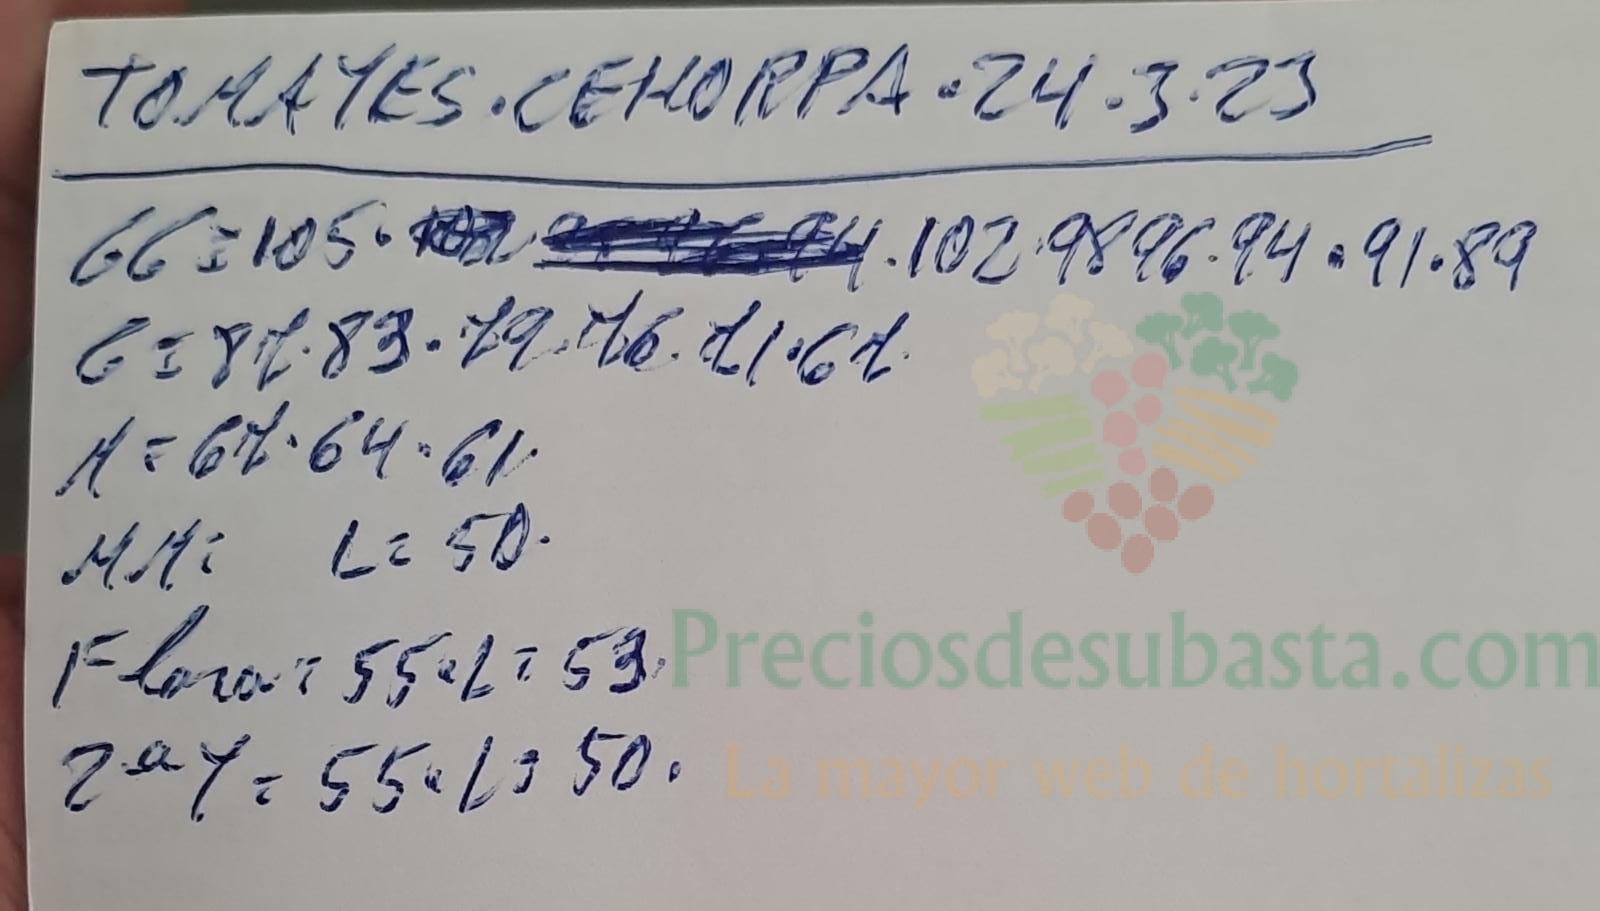 TOMATES.CEHORPA.24.3.23
GG=105.102.98 96.94.91.89
G=87.83.79.76.71.67.
M=67.64.61.
MM= L=50.
Floro=55.L=53.
2ªY=55.L=50.
Preciosdesubasta.com
La mayor web de hortalizas